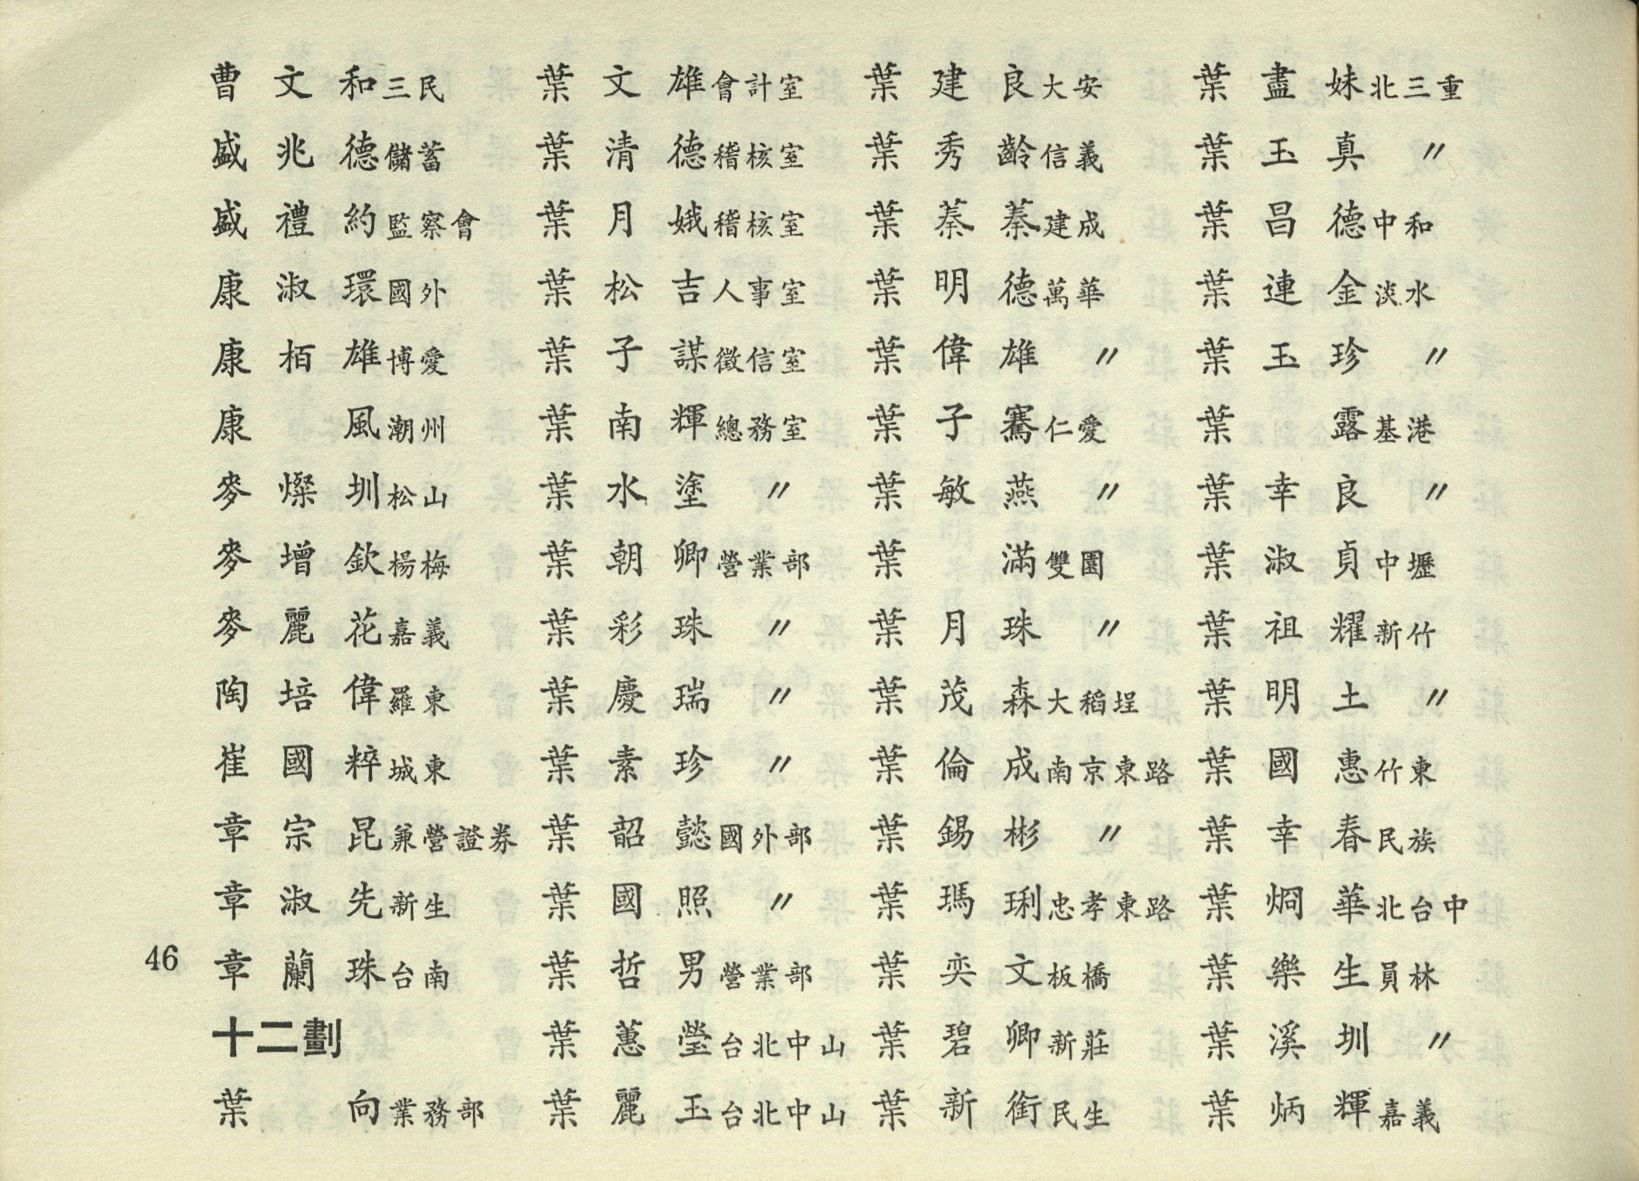 曹文和三民
盛兆德儲蓄
盛禮約監察會
康淑環國外
康栢雄博愛
康　風潮州
麥燦圳松山
麥增欽楊梅
麥麗花嘉義
陶培偉羅東
崔國粹城東
章宗昆兼營證券
章淑先新生
章蘭珠台南
十二劃
葉　向業務部
葉文雄會計室
葉清德稽核室
葉月娥稽核室
葉松吉人事室
葉子謀徵信室
葉南輝總務室
葉水塗〃
葉朝卿營業部
葉彩珠〃
葉慶瑞〃
葉素珍〃
葉韶懿國外部
葉國照〃
葉哲男營業部
葉蕙瑩台北中山
葉麗玉台北中山
葉建良大安
葉秀齡信義
葉蓁蓁建成
葉明德萬華
葉偉雄〃
葉子騫仁愛
葉敏燕〃
葉　滿雙園
葉月珠〃
葉茂森大稻埕
葉倫成南京東路
葉錫彬〃
葉瑪琍忠孝東路
葉奕文板橋
葉碧卿新莊
葉新銜民生
葉盡妹北三重
葉玉真〃
葉昌德中和
葉連金淡水
葉玉珍〃
葉　露基港
葉幸良〃
葉淑貞中壢
葉祖耀新竹
葉明土〃
葉國惠竹東
葉幸春民族
葉烱華北台中
葉樂生員林
葉溪圳〃
葉炳輝嘉義
46